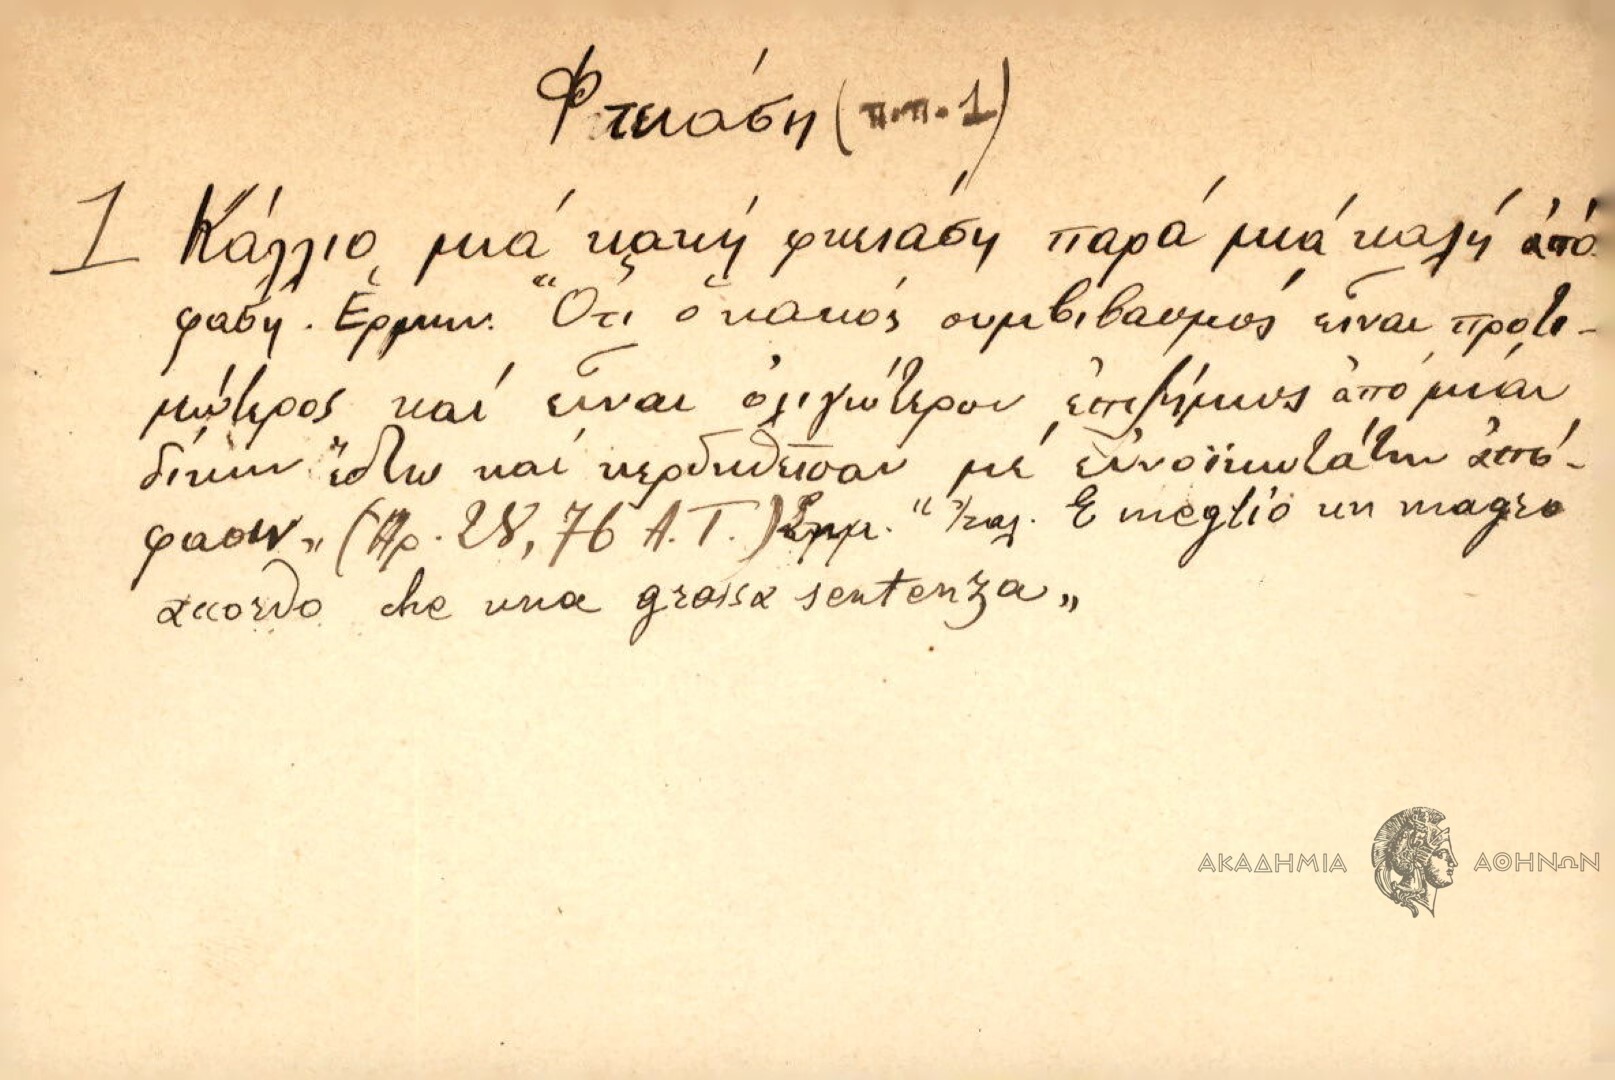 Φτειάση (π.π. 1)
1 Κάλλιο μιά κακή φτειάση παρά μιά καλή ἀπό
φαση. Ἑρμην. "Ὅτι ὁ κακός συμβιβασμός εἶναι προτι-
μώτερος καί εἶναι ὀλιγώτερον ἐπιζήμιος ἀπό μίαν
δίκην ἔστω καί κερδηθεῖσαν μέ εὐνοϊκωτάτην ἀπό-
φασιν„ (Ἀρ. 28, 76 Α.Τ.) Σημ. "Ἰταλ. E meglio un magro
accordo che una grassa sentenza„
ΑΚΑΔΗΜΙΑ ΑΘΗΝΩΝ